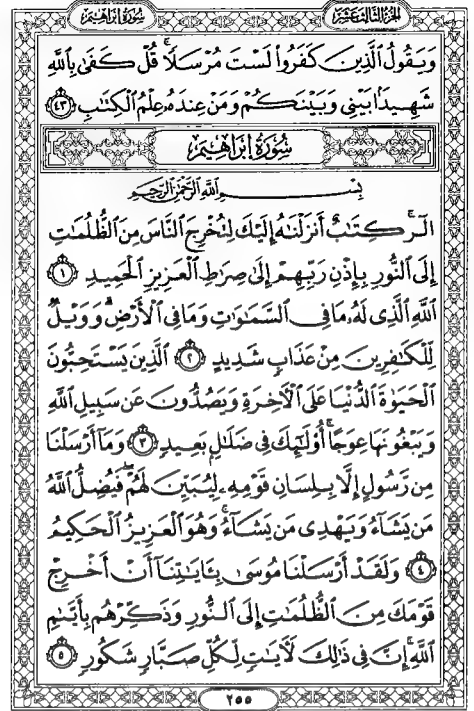 سُورَةُ إِبْرَاهِيم
الجزء الثالث عشر
وَيَقُولُ ٱلَّذِينَ كَفَرُواْ لَسْتَ مُرْسَلًاۚ قُلْ كَفَىٰ بِٱللَّهِ
شَهِيدَۢا بَيْنِي وَبَيْنَكُمْ وَمَنْ عِندَهُۥ عِلْمُ ٱلْكِتَٰبِ ٤٣
سُورَةُ إِبْرَاهِيم
بِسْمِ ٱللَّهِ ٱلرَّحْمَٰنِ ٱلرَّحِيمِ
الٓرۚ كِتَٰبٌ أَنزَلْنَٰهُ إِلَيْكَ لِتُخْرِجَ ٱلنَّاسَ مِنَ ٱلظُّلُمَٰتِ
إِلَى ٱلنُّورِ بِإِذْنِ رَبِّهِمْ إِلَىٰ صِرَٰطِ ٱلْعَزِيزِ ٱلْحَمِيدِ ١
ٱللَّهِ ٱلَّذِي لَهُۥ مَا فِي ٱلسَّمَٰوَٰتِ وَمَا فِي ٱلْأَرْضِۗ وَوَيْلٌ
لِّلْكَٰفِرِينَ مِنْ عَذَابٍ شَدِيدٍ ٢ ٱلَّذِينَ يَسْتَحِبُّونَ
ٱلْحَيَوٰةَ ٱلدُّنْيَا عَلَى ٱلْأٓخِرَةِ وَيَصُدُّونَ عَن سَبِيلِ ٱللَّهِ
وَيَبْغُونَهَا عِوَجًاۚ أُوْلَٰٓئِكَ فِي ضَلَٰلٍۭ بَعِيدٍ ٣ وَمَآ أَرْسَلْنَا
مِن رَّسُولٍ إِلَّا بِلِسَانِ قَوْمِهِۦ لِيُبَيِّنَ لَهُمْۖ فَيُضِلُّ ٱللَّهُ
مَن يَشَآءُ وَيَهْدِي مَن يَشَآءُۚ وَهُوَ ٱلْعَزِيزُ ٱلْحَكِيمُ
٤ وَلَقَدْ أَرْسَلْنَا مُوسَىٰ بِـَٔايَٰتِنَآ أَنْ أَخْرِجْ
قَوْمَكَ مِنَ ٱلظُّلُمَٰتِ إِلَى ٱلنُّورِ وَذَكِّرْهُم بِأَيَّىٰمِ
ٱللَّهِۚ إِنَّ فِي ذَٰلِكَ لَأٓيَٰتٍ لِّكُلِّ صَبَّارٍ شَكُورٍ ٥
٢٥٥